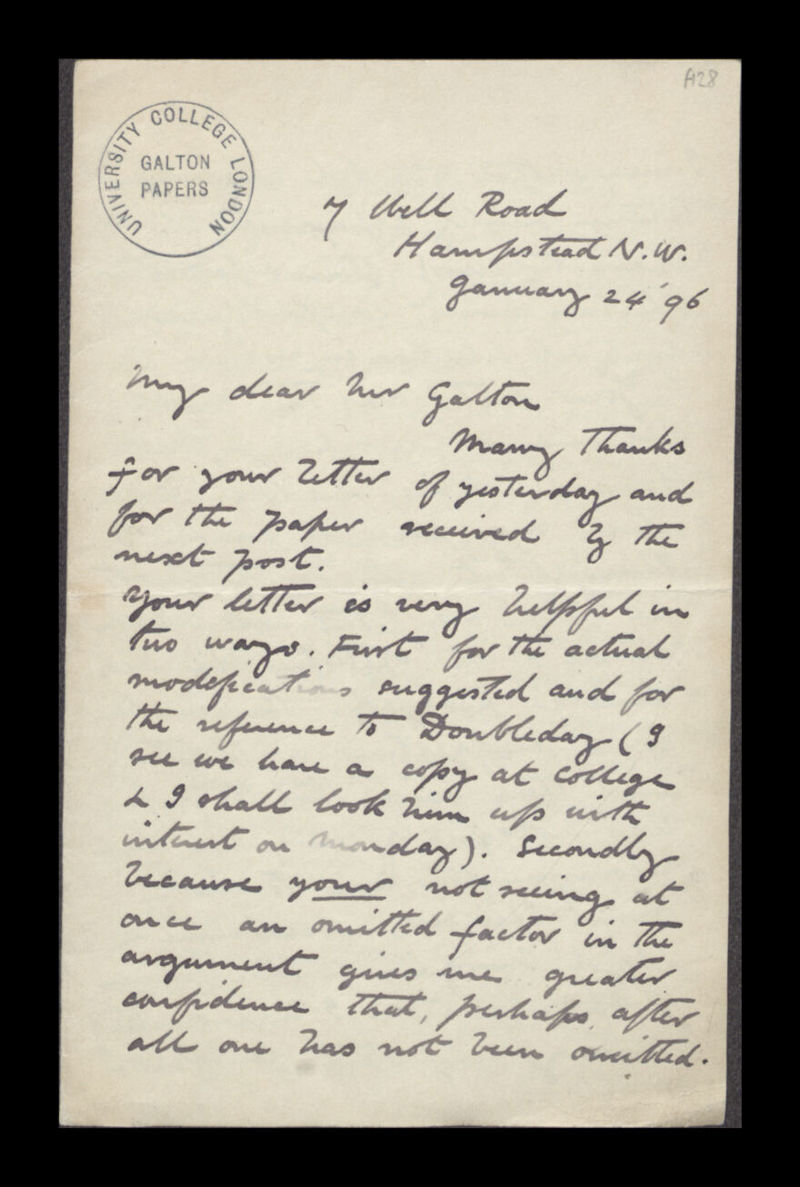 A28
UNIVERSITY COLLEGE LONDON
GALTON
PAPERS
7 Well Road
Hampstead N.W.
January 24 '96
My dear Mr Galton
Many thanks
for your letter of yesterday and
for the paper received by the
next post.
Your letter is very helpful in
two ways. First for the actual
modifications suggested and for
the reference to Doubleday (I
see we have a copy at College
& I shall look him up with
interest on Monday). Secondly
because your not seeing at
once an omitted factor in the
argument gives me greater
confidence that, perhaps, after
all one has not been omitted.